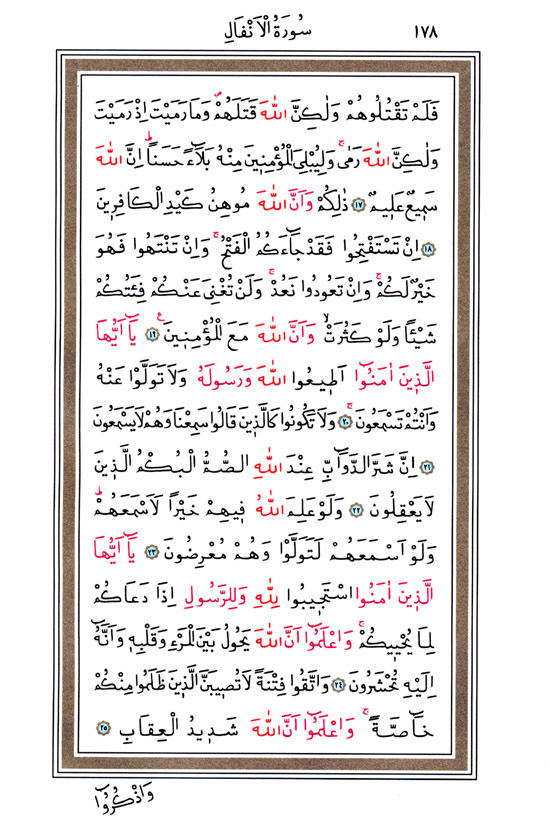 ١٧٨ سُورَةُ الْاَنْفَالِ
فَلَمْ تَقْتُلُوهُمْ وَلٰكِنَّ اللّٰهَ قَتَلَهُمْۖ وَمَا رَمَيْتَ اِذْ رَمَيْتَ
وَلٰكِنَّ اللّٰهَ رَمٰىۚ وَلِيُبْلِيَ الْمُؤْمِن۪ينَ مِنْهُ بَلَٓاءً حَسَنًاۜ اِنَّ اللّٰهَ
سَم۪يعٌ عَل۪يمٌ ﴿١٧﴾ ذٰلِكُمْ وَاَنَّ اللّٰهَ مُوهِنُ كَيْدِ الْكَافِر۪ينَ
﴿١٨﴾ اِنْ تَسْتَفْتِحُوا فَقَدْ جَٓاءَكُمُ الْفَتْحُۚ وَاِنْ تَنْتَهُوا فَهُوَ
خَيْرٌ لَكُمْۚ وَاِنْ تَعُودُوا نَعُدْۚ وَلَنْ تُغْنِيَ عَنْكُمْ فِئَتُكُمْ
شَيْـًٔا وَلَوْ كَثُرَتْۙ وَاَنَّ اللّٰهَ مَعَ الْمُؤْمِن۪ينَ۟ ﴿١٩﴾ يَٓا اَيُّهَا
الَّذ۪ينَ اٰمَنُٓوا اَط۪يعُوا اللّٰهَ وَرَسُولَهُ وَلَا تَوَلَّوْا عَنْهُ
وَاَنْتُمْ تَسْمَعُونَۚ ﴿٢٠﴾ وَلَا تَكُونُوا كَالَّذ۪ينَ قَالُوا سَمِعْنَا وَهُمْ لَا يَسْمَعُونَ
﴿٢١﴾ اِنَّ شَرَّ الدَّوَٓابِّ عِنْدَ اللّٰهِ الصُّمُّ الْبُكْمُ الَّذ۪ينَ
لَا يَعْقِلُونَ ﴿٢٢﴾ وَلَوْ عَلِمَ اللّٰهُ ف۪يهِمْ خَيْرًا لَاَسْمَعَهُمْۜ
وَلَوْ اَسْمَعَهُمْ لَتَوَلَّوْا وَهُمْ مُعْرِضُونَ ﴿٢٣﴾ يَٓا اَيُّهَا
الَّذ۪ينَ اٰمَنُوا اسْتَج۪يبُوا لِلّٰهِ وَلِلرَّسُولِ اِذَا دَعَاكُمْ
لِمَا يُحْي۪يكُمْۚ وَاعْلَمُٓوا اَنَّ اللّٰهَ يَحُولُ بَيْنَ الْمَرْءِ وَقَلْبِه۪ وَاَنَّهُٓ
اِلَيْهِ تُحْشَرُونَ ﴿٢٤﴾ وَاتَّقُوا فِتْنَةً لَا تُص۪يبَنَّ الَّذ۪ينَ ظَلَمُوا مِنْكُمْ
خَٓاصَّةًۚ وَاعْلَمُٓوا اَنَّ اللّٰهَ شَد۪يدُ الْعِقَابِ ﴿٢٥﴾
وَاذْكُرُٓوا